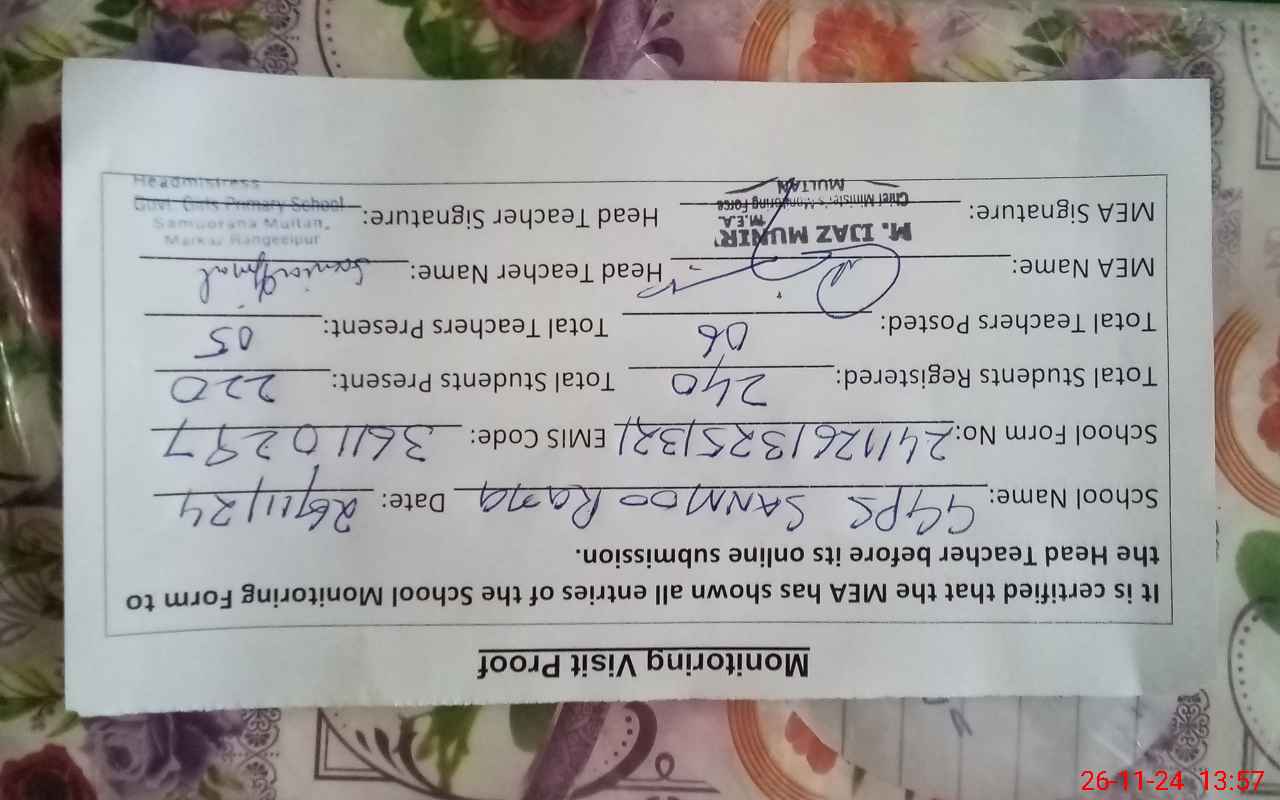 Monitoring Visit Proof
It is certified that the MEA has shown all entries of the School Monitoring Form to
the Head Teacher before its online submission.
School Name: GGPS SANMOO Rana Date: 26/11/24
School Form No: 241126/325/321 EMIS Code: 36110297
Total Students Registered: 240 Total Students Present: 220
Total Teachers Posted: 06 Total Teachers Present: 05
MEA Name: Head Teacher Name:
M. IJAZ MUNIR
M.E.A.
MEA Signature: Chief Minister's Monitoring Force Head Teacher Signature:
MULTAN
Markaz Rangeelpur
Samoorana Multan,
Govt. Girls Primary School
Headmistress
26-11-24 13:57